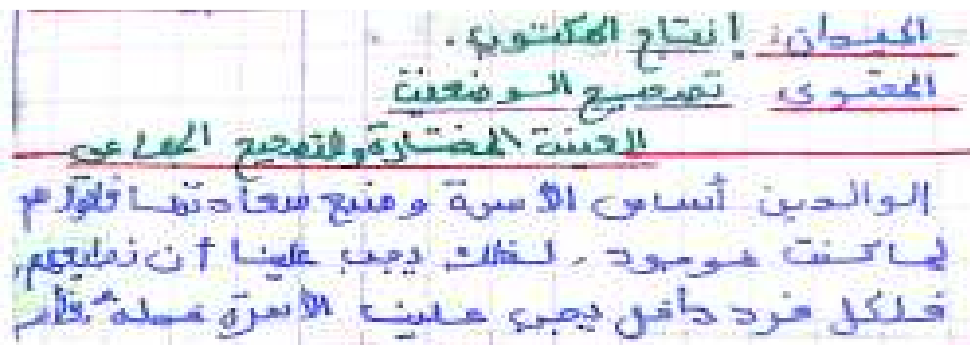 الميدان: إنتاج المكتوب.
المحتوى تصحيح الوضعية
العينة المختارة والتصحيح الجماعي
الوالدين أساس الأسرة و منبع سعادتها فلولاهم
لما كنت موجود. لذلك يجب علينا أن نطيعهم,
فلكل فرد داخل الأسرة